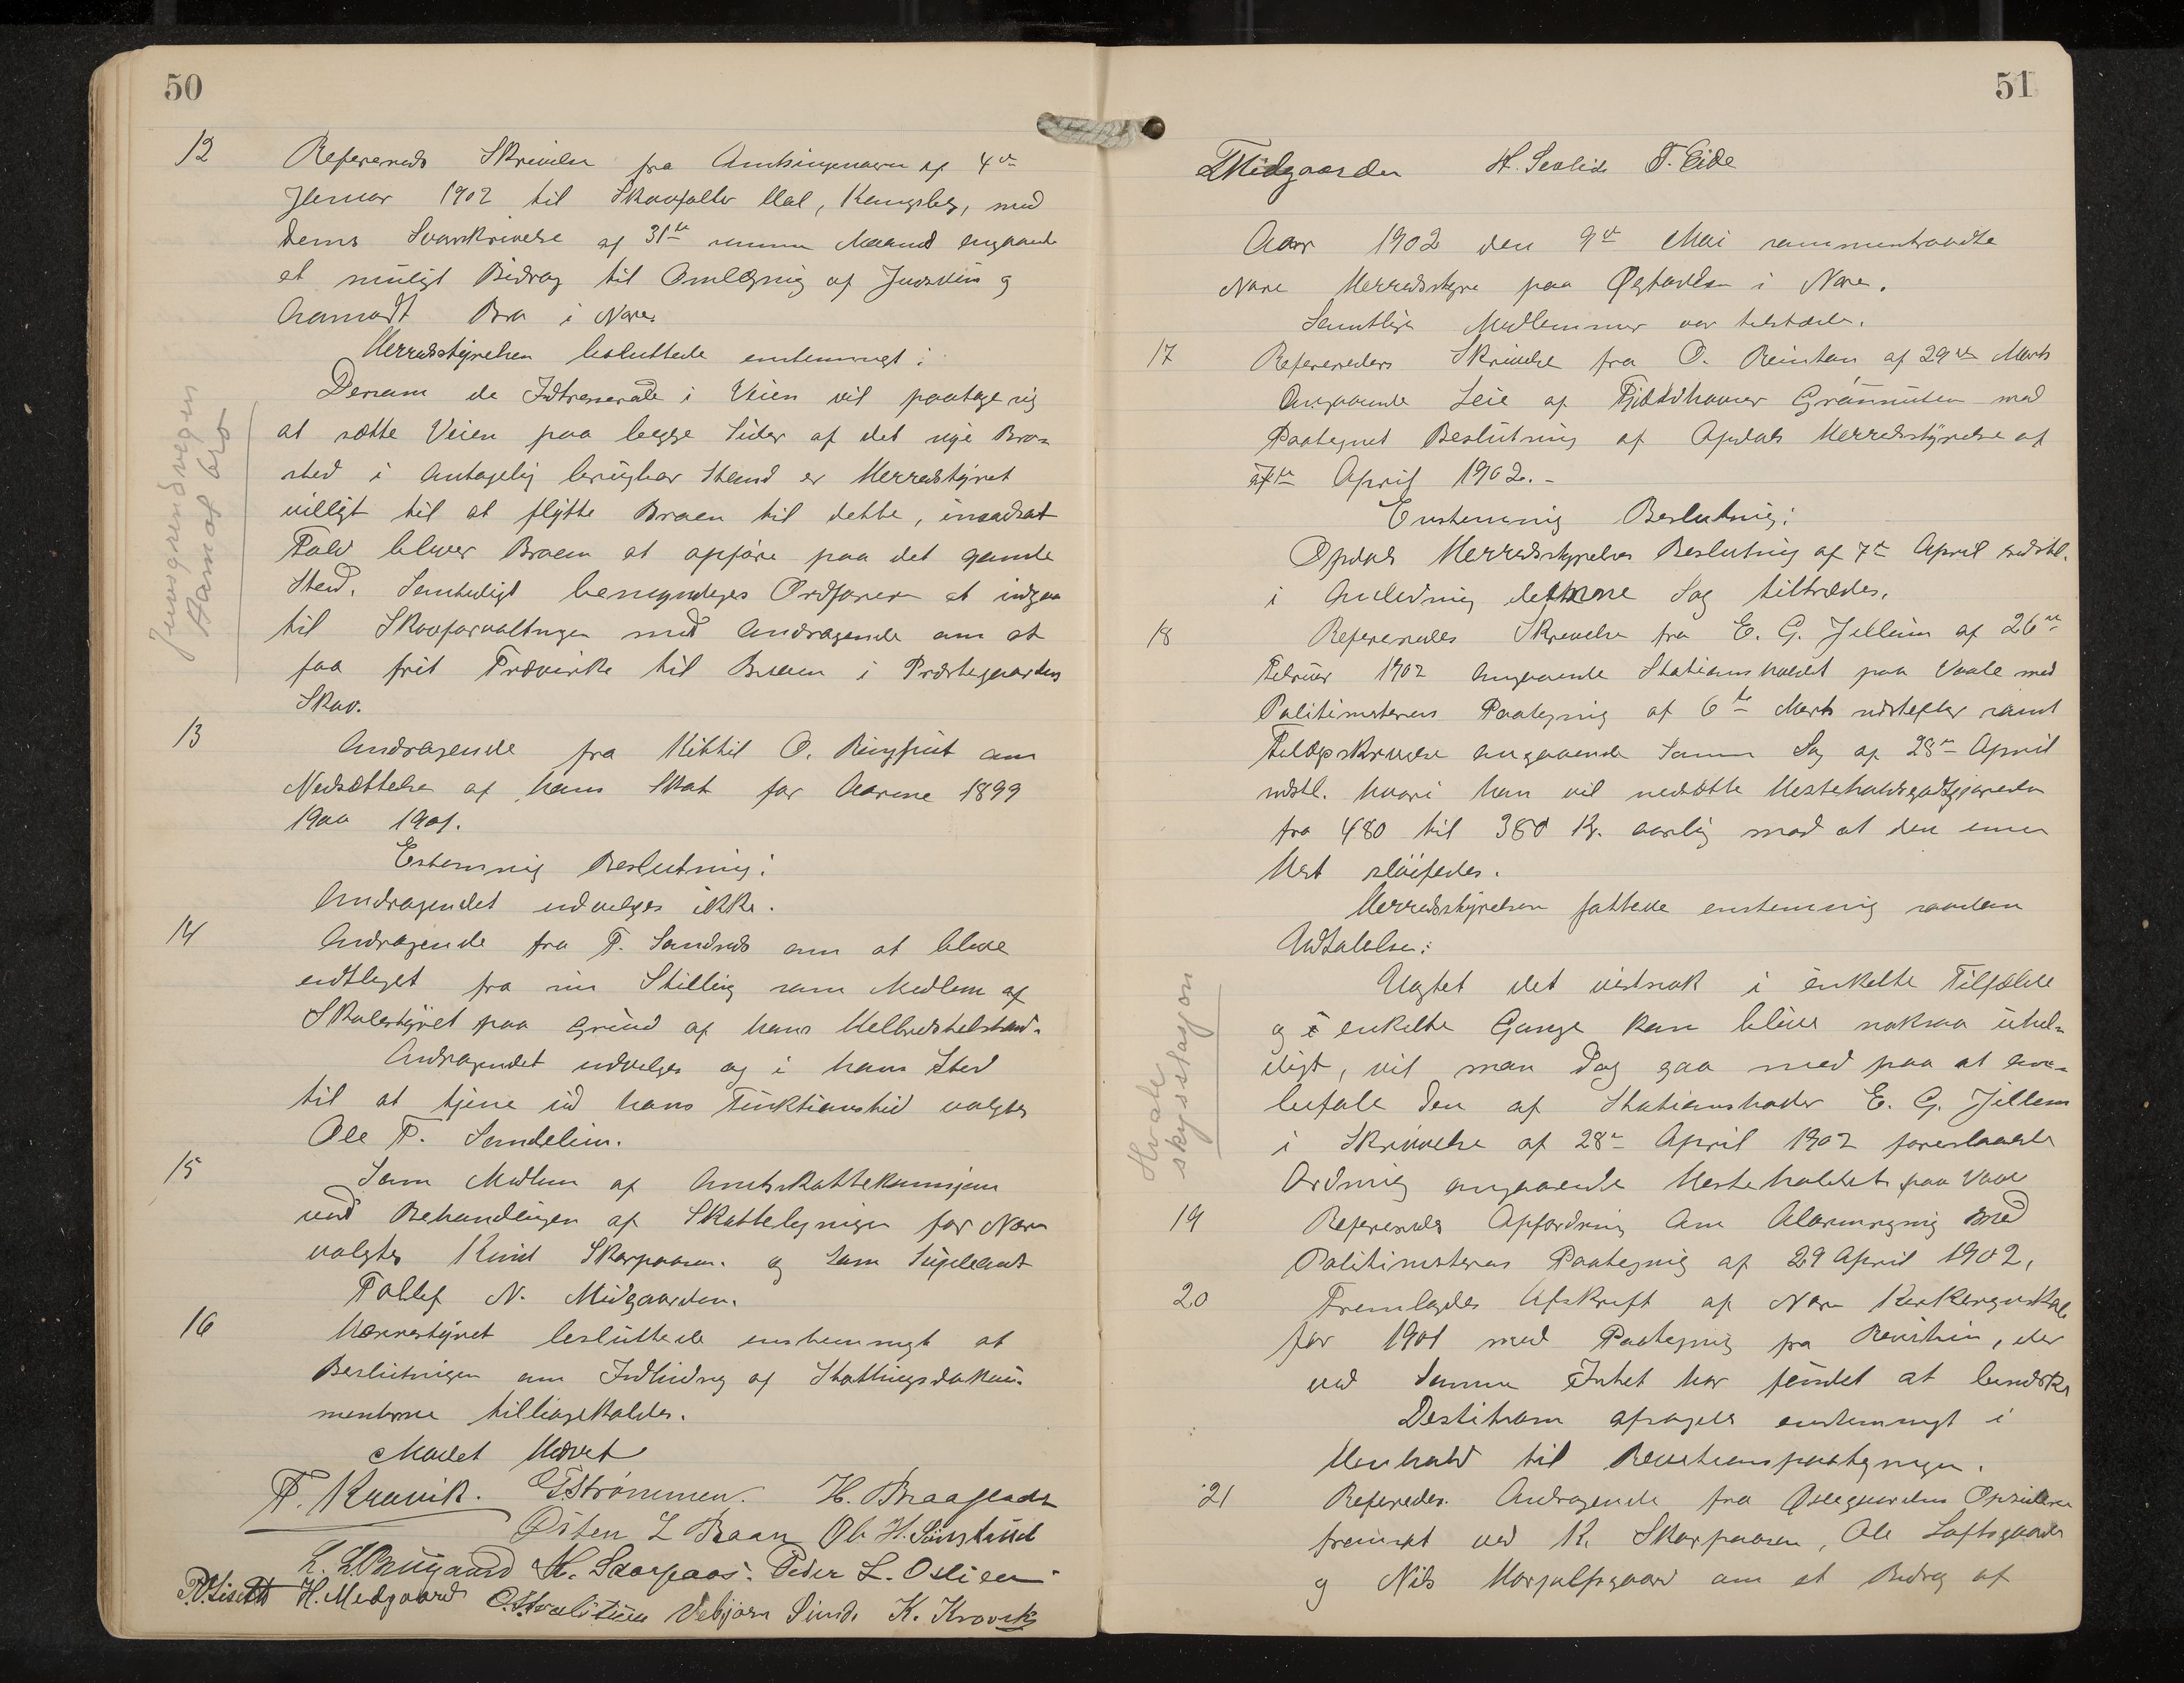 50
12 Refereredes Skrivelse fra Amtsingeniøren af 4de
Januar 1902 til Skovfoller Kongsberg, med
dennes Svarskrivelse af 31te samme Maaned angaaende
et muligt Bidrag til Omlægnig af Juvsvein og
Aamodt Bro i Nore.
Herredsstyrelsen besluttede enstemmigt:
Dersom de Intresserede i Veien vil paatage sig
at sætte Veien paa begge Sider af det nye Bro-
sted i antagelig brugbar Stand er Herredstyret
villigt til at flytte Broen til dette, imodsat
Fald bliver Broen at opføre paa det gamle
Sted. Samtidigt bemyndiges Ordføreren at indgaa
til Skovforvaltngen med Andragende om at
faa frit Trævirke til Broen i Præstegaardens
Skov.
Juvsgrendvegen
Aamot bro
13 Andragende fra Kittil O. om
Nedsættelse af hans Skat for Aarene 1899
1900 1901.
Estemmig Beslutning:
Andragendet indvilges ikke.
14 Andragende fra T. om at blive
endtlaget fra sin Stilling som Medlem af
Skolestyret paa Grund af hans Helbredstilstand.
Andragendet indvilges og i hans Sted
til at tjene ud hans Funktionstid valgtes
Ole T.
15 Som Medlem af Amtsskattekomisjon
ved Behandlingen af Skatteligningen for Nore
valgtes Knut Skarpaasen. og som Supleant
Tollef N. Midgaarden.
16 Herredstyret besluttede enstemmigt at
Beslutningen om Indbinding af Stortingsdokum-
menterne tilbagekaldes.
Mødet Hævet
T. Kravik. T Strømmen. H. Braafladt
Østen L Braan Ole H. Sønstrud
H. Skarpaas. Peder L. Oslien
H. Medgaard Vebjørn K. Kravik
51
T Midgaarden H. T. Eide
Aar 1902 den 9de Mai sammentraadte
Nore Herredsstyre paa i Nore.
Samtlige Medlemmer var tilstæde.
17 Refereredes Skrivelse fra O. Reinton af 29de Marts
Angaaende Leie af Fjeldthavner Grønnuten med
Paategnet Beslutning af Opdals Herredsstyrelse af
7de April 1902.-
Enstemmig Beslutnig:
Opdals Herredsstyrelses Beslutnig af 7de April sidstl.
i Anledning denne Sag tiltrædes.
18 Refereredes Skrivelse fra E. G. Jellum af 26de
Februar 1902 angaaende Stationsholdet paa Vaale med
Politimsterens Paategnig af 6te Marts sidstefter samt
Tillægsskrivelse angaaende samme Sag af 28de April
sidstl. hvori han vil nedsætte Hesteholdsgodtgjørelsen
fra 480 til 380 Kr. aarlig mod at den ene
Hest sløifedes.
Herredsstyrelsen fattede enstemmig saadan
Udtalelse:
Uagtet det vistnok i enkelte Tilfælde
og i enkelte Gange kan blive noksaa uhel-
digt, vil man Dog gaa med paa at anbe-
befale den af Stationsholder E. G. Jellum
i Skrivelse af 28de April 1902 foreslaaede
Ordning angaaende Hesteholdet paa Vaale
Hvale
skysstasjon
19 Refereredes Opfordring Om Alarmrygnig med
Politimsterens Paategnig af 29 April 1902,
20 Fremlagdes Afskrift af Nore Kirkeregnskab
for 1901 med Paategnig fra Revision, der
ved Samme Intet har fundet at bemærke
Destiharm afsagdes enstemmigt i
Henhold til Revisionspaategningen.
21 Refereredes. Andragende fra Opsiddere
fremsat ved K. Skarpaasen, Ole Loftsgaarden
og Nils om et Bidrag af